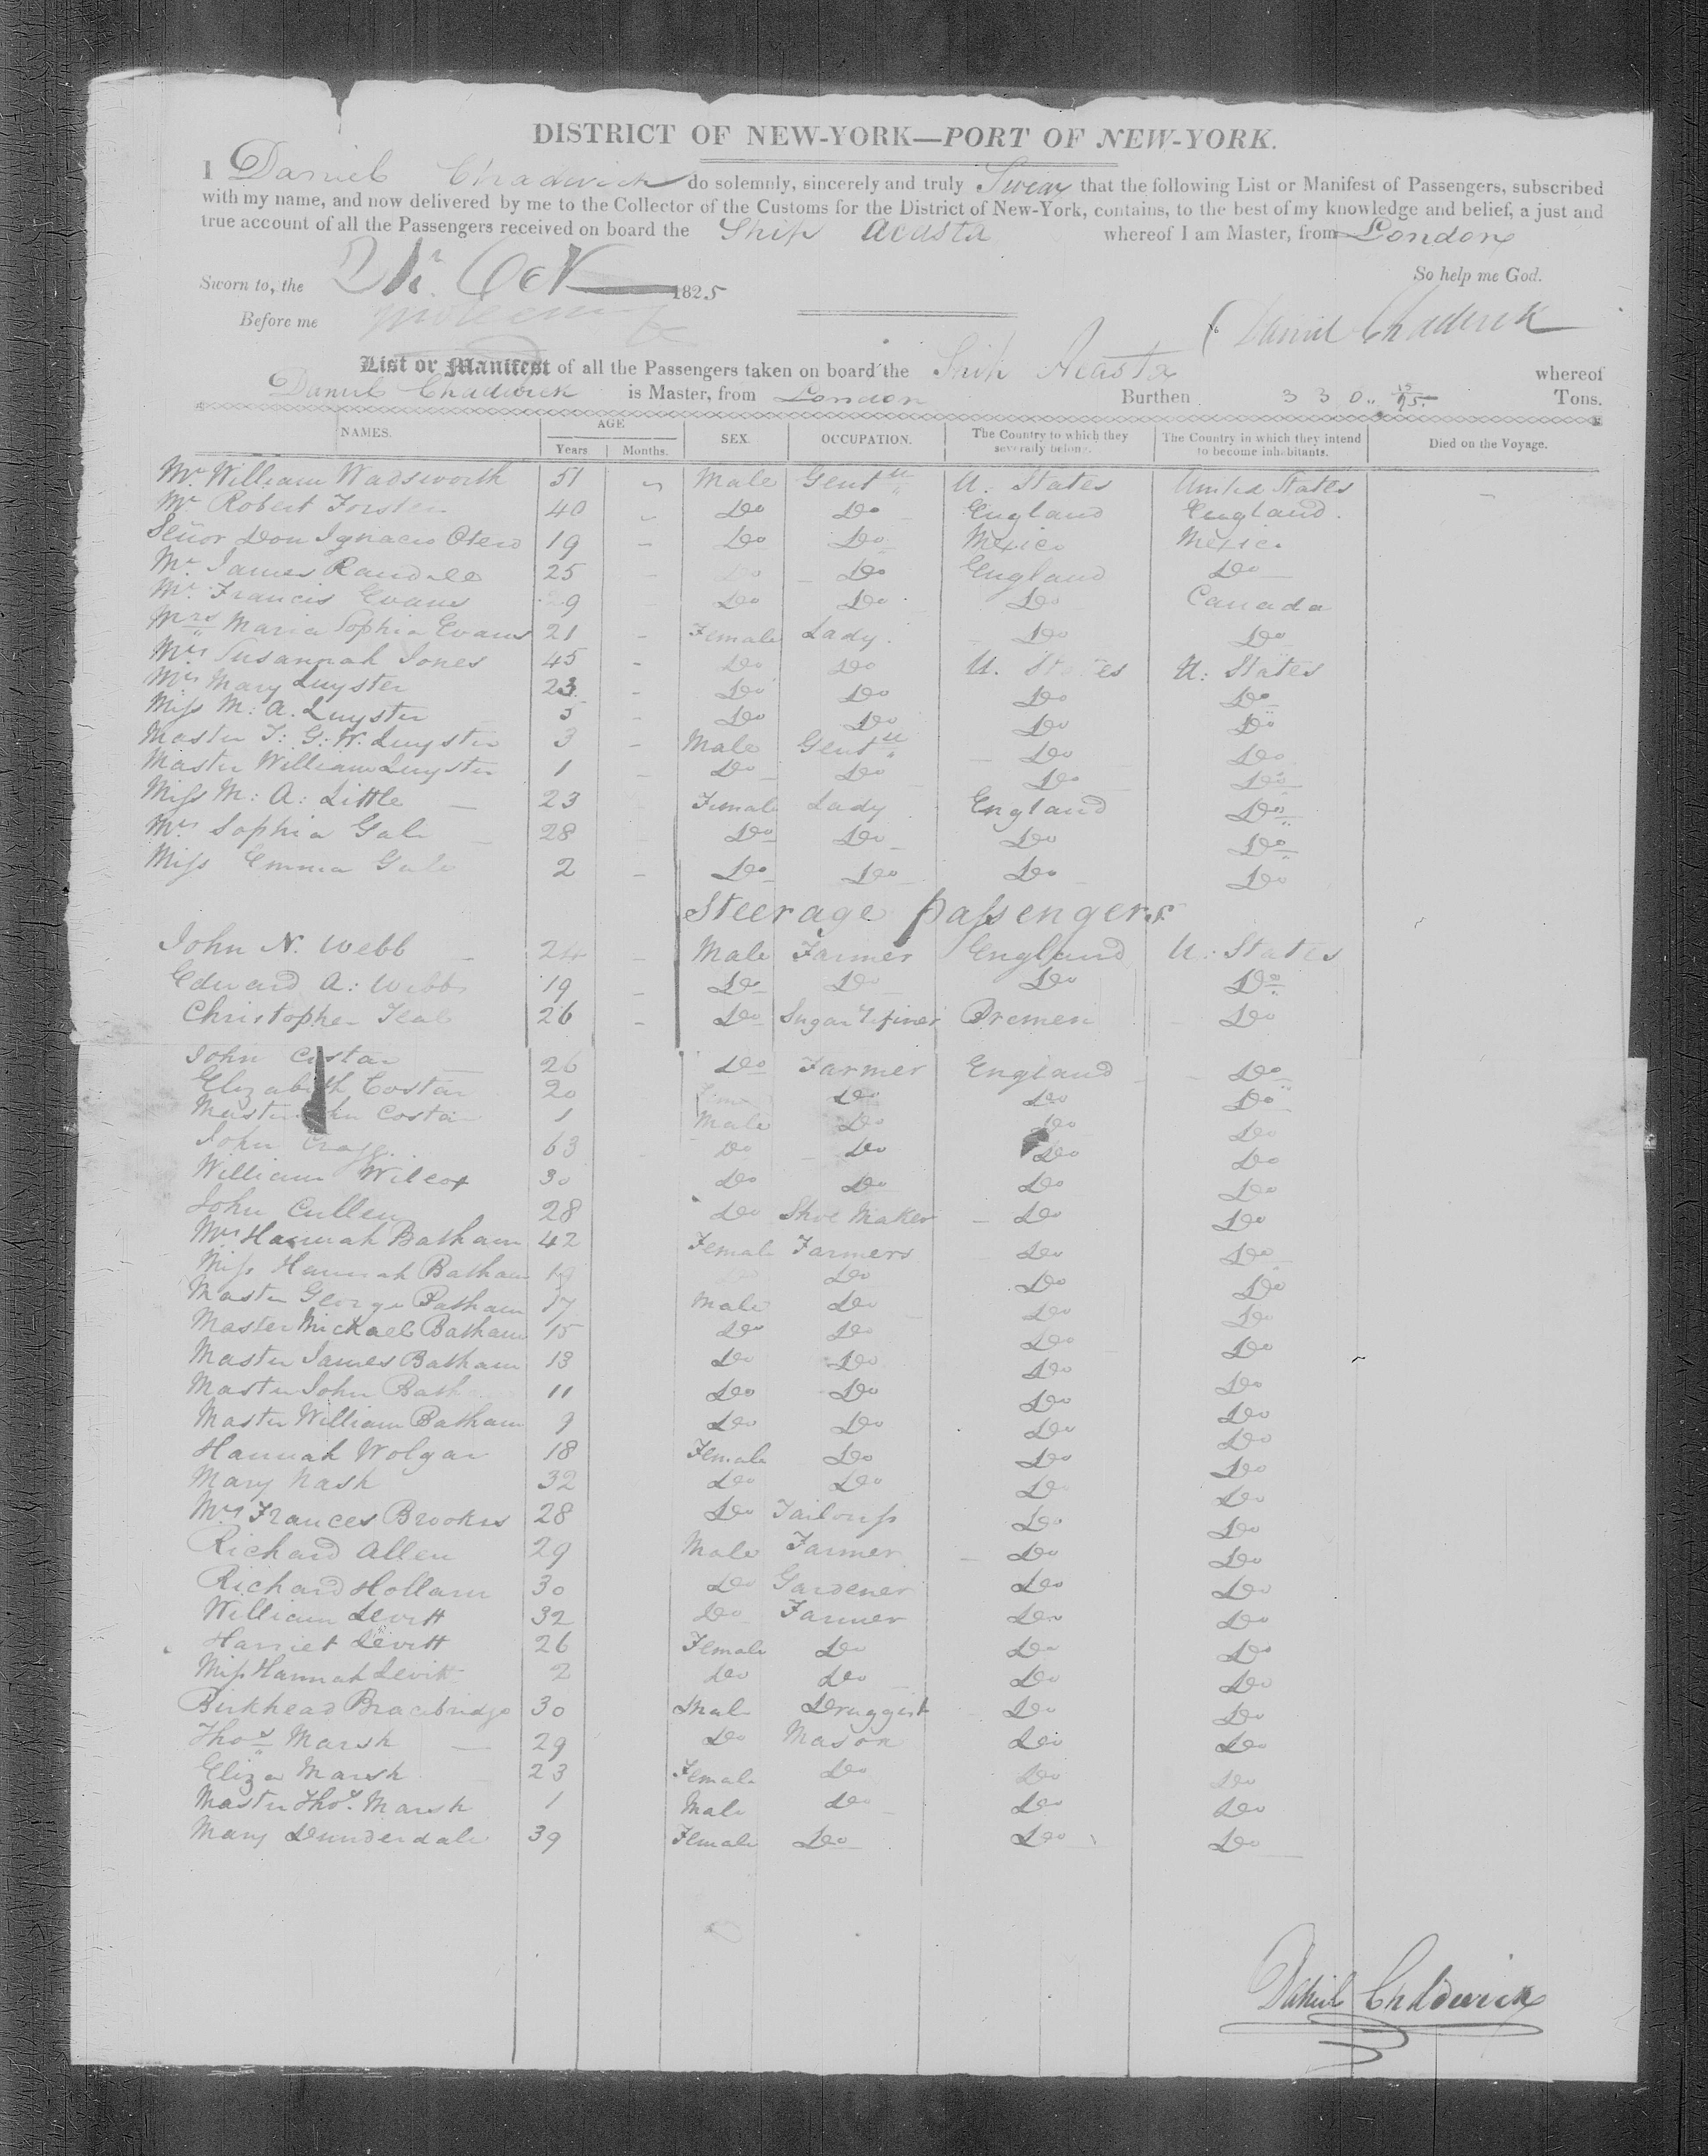 DISTRICT OF NEW-YORK—PORT OF NEW-YORK.
I Daniel Chadwick do solemnly, sincerely and truly Swear that the following List or Manifest of Passengers, subscribed
with my name, and now delivered by me to the Collector of the Customs for the District of New-York, contains, to the best of my knowledge and belief, a just and
true account of all the Passengers received on board the Ship Acasta whereof I am Master, from London
So help me God.
Sworn to, the Oct 1825
Before me
Daniel Chadwick
List or Manifest of all the Passengers taken on board the Ship Acasta whereof
Daniel Chadwick is Master, from London Burthen 330.. 15/95 Tons.
NAMES. AGE Years Months. SEX. OCCUPATION. The Country to which they severally belong. The Country in which they intend to become inhabitants. Died on the Voyage.
Mr William Wadsworth 51 Male Gent U. States United States
Mr Robert Forster 40 Do Do England England.
Señor Don Ignacio Otero 19 Do Do Mexico Mexico
Mr James Randall 25 Do Do England Do
Mr Francis Evans 29 Do Do Do Canada
Mrs Maria Sophia Evans 21 Female Lady. Do Do
Mrs Susannah Jones 45 Do Do U. States U: States
Mrs Mary Luyster 23 Do Do Do Do
Miss M: A. Luyster 5 Do Do Do Do
Master T: G: W. Luyster 3 Male Gent Do Do
Master William Luyster 1 Do Do Do Do
Miss M: A: Little 23 Female Lady England Do
Mrs Sophia Gale 28 Do Do Do Do
Miss Emma Gale 2 Do Do Do Do
Steerage passengers
John N. Webb 24 Male Farmer England U: States
Edward A: Webb 19 Do Do Do Do
Christopher 26 Do Sugar refiner Bremen Do
John Costar 26 Do Farmer England Do
Elizabeth Costar 20 Do Do Do
Master John Costar 1 Male Do Do Do
John Cragg. 63 Do Do Do Do
William Wilcox 30 Do Do Do Do
John Cullen 28 Do Shoe Maker Do Do
Mrs Hannah Batham 42 Female Farmers Do Do
Miss Hannah Batham 19 Do Do Do
Master George Batham 17 Male Do Do Do
Master Mickael Batham 15 Do Do Do Do
Master James Batham 13 Do Do Do Do
Master John Bath 11 Do Do Do Do
Master William Batham 9 Do Do Do Do
Hannah Wolgar 18 Female Do Do Do
Mary Nash 32 Do Do Do Do
Mrs Frances Brookes 28 Do Tailoress Do Do
Richard Allen 29 Male Farmer Do Do
Richard Hollam 30 Do Gardener Do Do
William Levitt 32 Do Farmer Do Do
Harriet Levitt 26 Female Do Do Do
Miss Hannah Levitt 2 Do Do Do Do
Birkhead Bracebridge 30 Male Druggist Do Do
Thos Marsh 29 Do Mason Do Do
Eliza Marsh 23 Female Do Do Do
Master Thos. Marsh 1 Male Do Do Do
Mary Dunderdale 39 Female Do Do Do
Daniel Chadwick